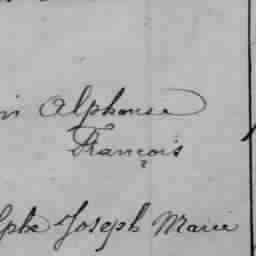 Alphonse
François
Joseph Marie